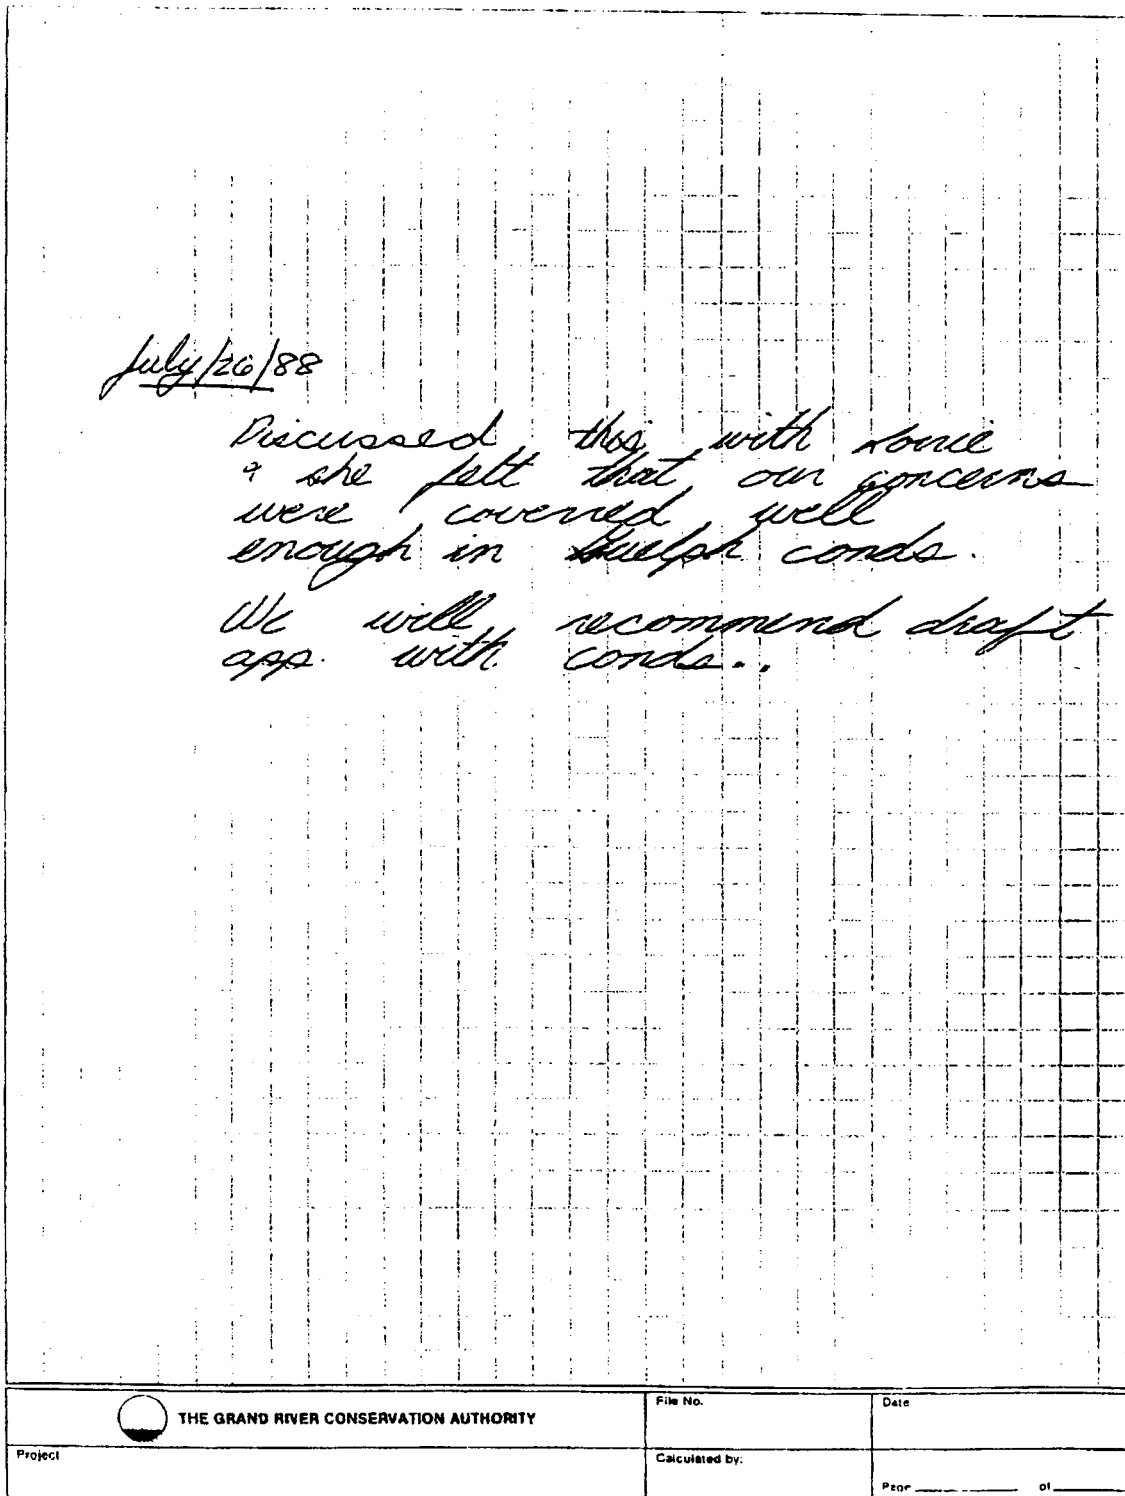 July/26/88
Discussed this with Lorrie
& she felt that our concerns
were covered well
enough in Guelph conds.
We will recommend draft
app. with conds..
THE GRAND RIVER CONSERVATION AUTHORITY
File No.
Date
Project
Calculated by:
Page of